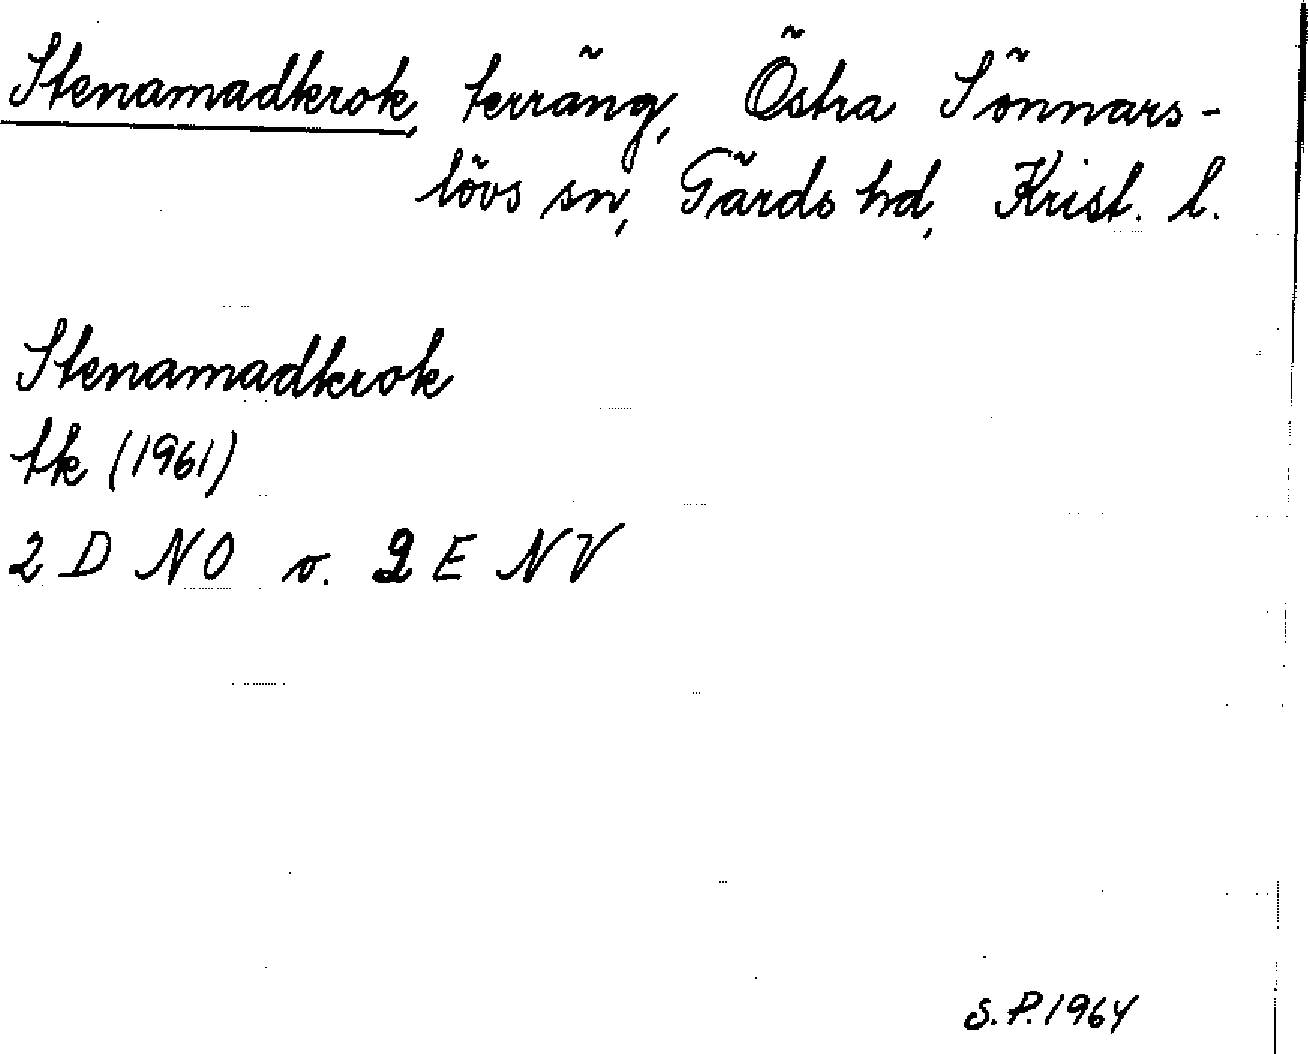 Stenamadkrok, terräng, Östra Sönnars-
lövs sn, Gärds hd, Krist. l.
Stenamadkrok
tk (1961)
2 D NO o. 2 E NV
S.P. 1964